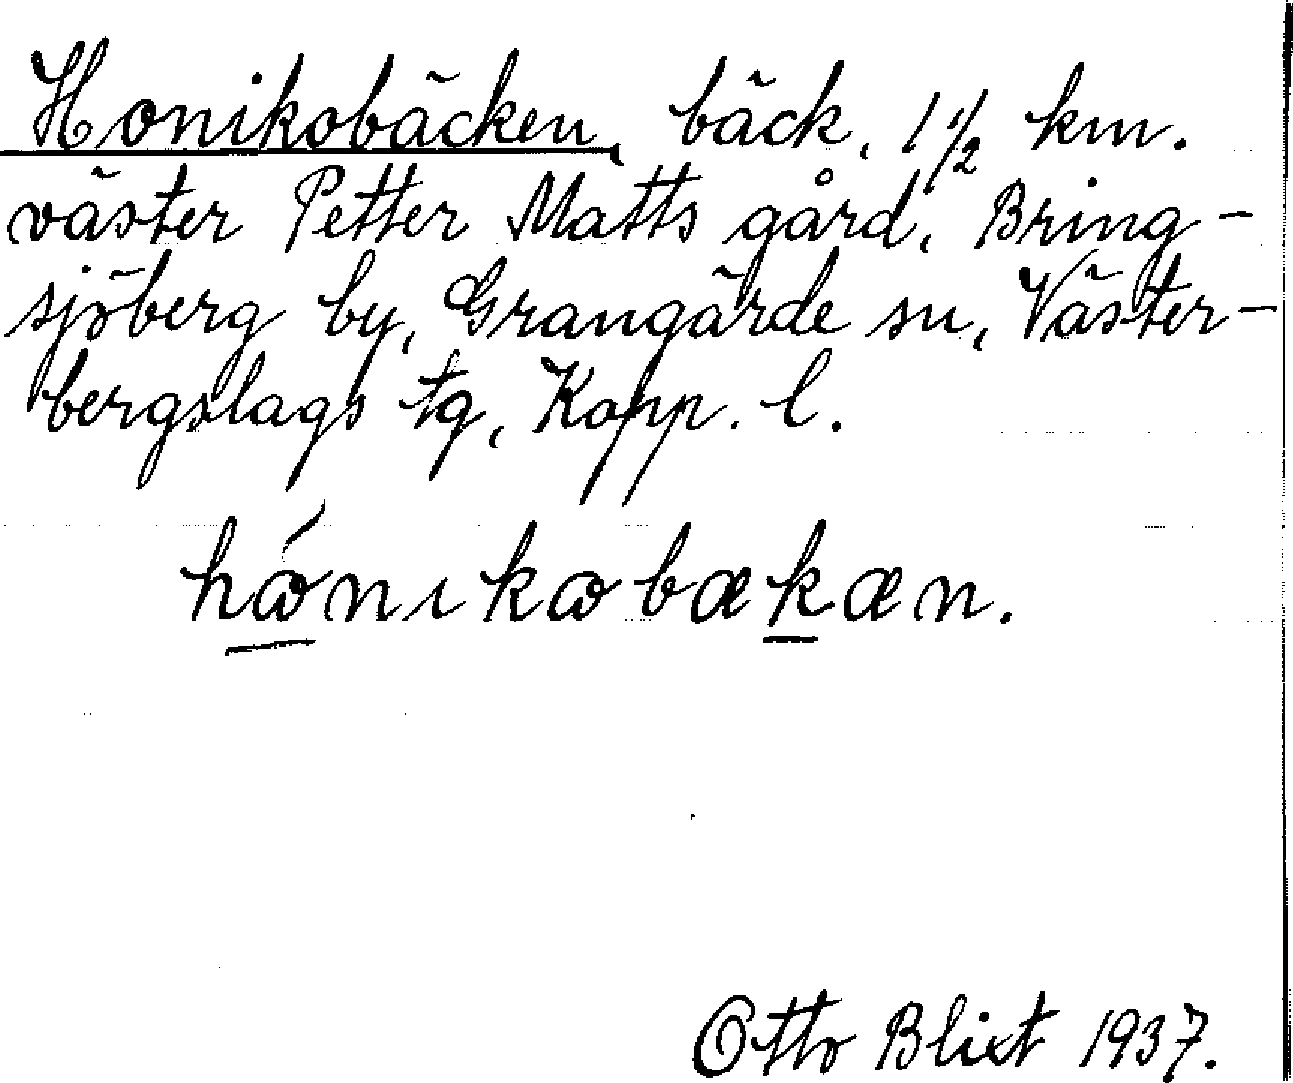 Honikobäcken, bäck, 1 1/2 km.
väster Petter Matts gård, Bring-
sjöberg by, Grangärde sn, Väster-
bergslags tg, Kopp. l.
hǿnıkøbækæn.
Otto Blixt 1937.